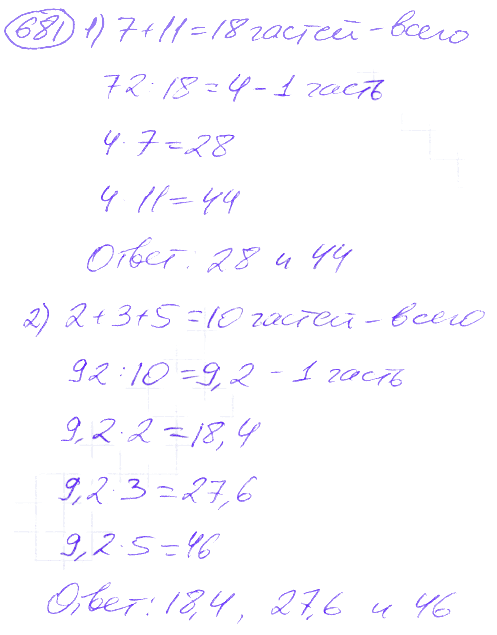 681 1) 7+11=18 частей - всего
72:18=4 - 1 часть
4·7=28
4 11=44
Ответ: 28 и 44
2) 2+3+5=10 частей - всего
92:10=9,2 - 1 часть
9,2·2=18,4
9,2·3=27,6
9,2·5=46
Ответ: 18,4, 27,6 и 46